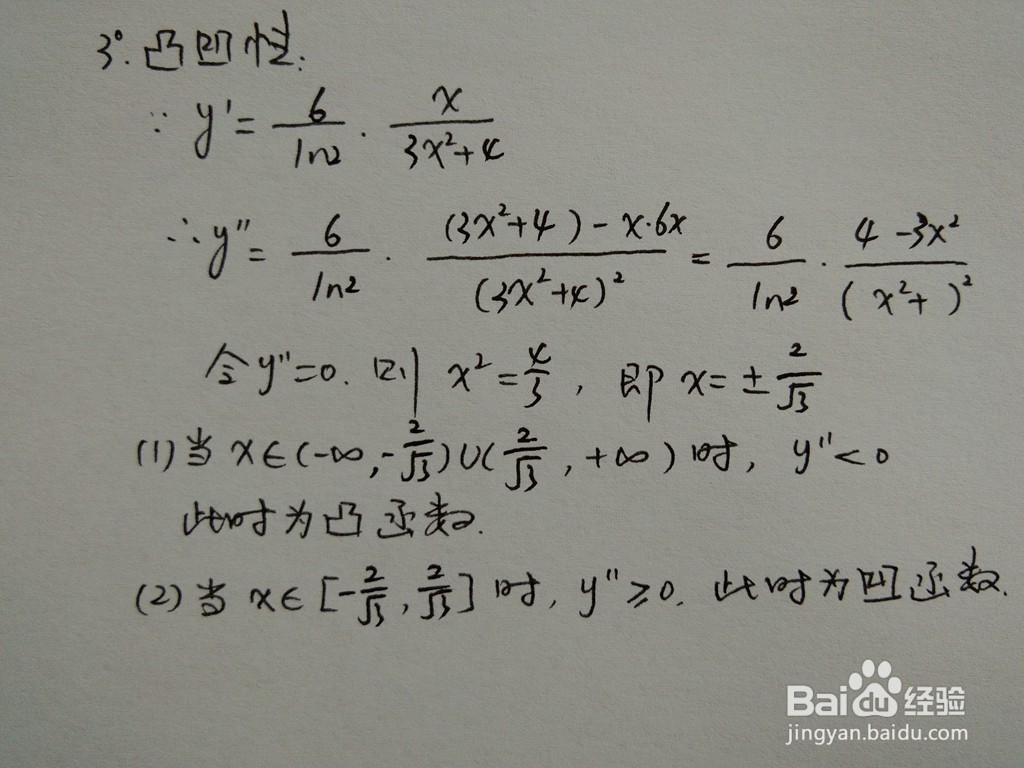 3°. 凸凹性:
∵ y' = 6/ln2 · x/(3x²+4)
∴ y'' = 6/ln2 · ((3x²+4) - x·6x)/(3x²+4)² = 6/ln2 · (4-3x²)/(x²+ )²
令y''=0. 则 x² = 4/3, 即 x = ± 2/√3
(1) 当 x∈(-∞, -2/√3)∪(2/√3, +∞) 时, y''<0
此时为凸函数.
(2) 当 x∈[-2/√3, 2/√3] 时, y''≥0. 此时为凹函数.
Baidu经验
jingyan.baidu.com